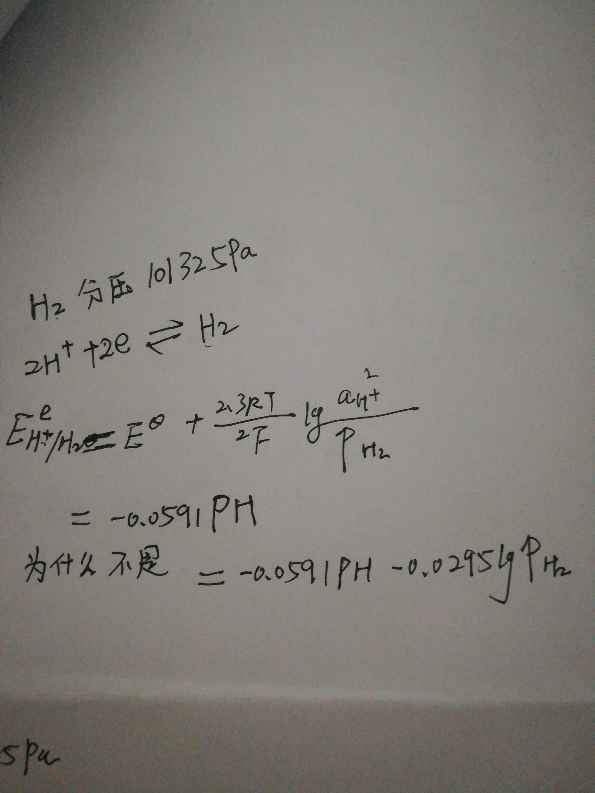 H₂ 分压 101325Pa
2H⁺ + 2e ⇌ H₂
E^e_{H⁺/H₂} = E^θ + \frac{2.3RT}{2F} lg \frac{a_{H^+}^2}{P_{H_2}}
= -0.0591PH
为什么不是 = -0.0591PH - 0.0295lgP_{H₂}
5Pa